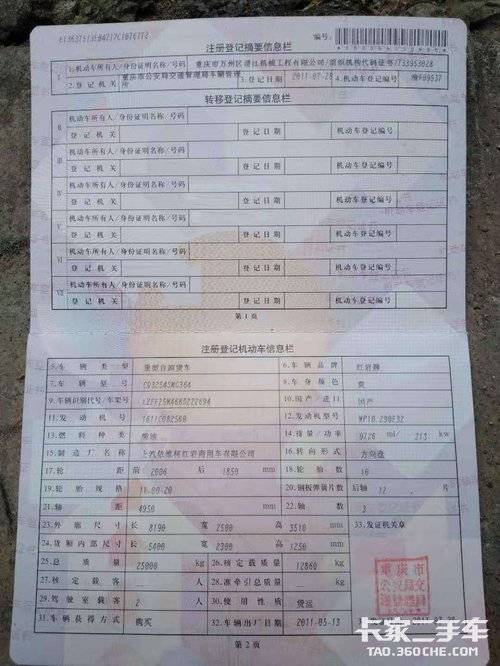 注册登记摘要信息栏 编号:
I 1.机动车所有人/身份证明名称/号码 重庆市万州区 机械工程有限公司/组织机构代码证书/733953928
2.登记机关 重庆市公安局交通管理局车辆管理所 3.登记日期 2011-07-28 4.机动车登记编号
转移登记摘要信息栏
II 机动车所有人/身份证明名称/号码
登记机关 登记日期 机动车登记编号
III 机动车所有人/身份证明名称/号码
登记机关 登记日期 机动车登记编号
IV 机动车所有人/身份证明名称/号码
登记机关 登记日期 机动车登记编号
V 机动车所有人/身份证明名称/号码
登记机关 登记日期 机动车登记编号
VI 机动车所有人/身份证明名称/号码
登记机关 登记日期 机动车登记编号
VII 机动车所有人/身份证明名称/号码
登记机关 登记日期 机动车登记编号
第1页
注册登记机动车信息栏
5.车辆类型 重型自卸货车 6.车辆品牌 红岩牌
7.车辆型号 CQ3254SMG384 8.车身颜色 黄
9.车辆识别代号/车架号 10.国产/进口 国产
11.发动机号 1611C082568 12.发动机型号 WP10.290E32
13.燃料种类 柴油 14.排量/功率 9726 ml/ 213 kw
15.制造厂名称 上汽依维柯红岩商用车有限公司 16.转向形式 方向盘
17.轮距 前2006 后 1850 mm 18.轮胎数 10
19.轮胎规格 11.00-20 20.钢板弹簧片数 后轴 12 片
21.轴距 4950 mm 22.轴数 3
23.外廓尺寸 长 8190 宽 2500 高 3510 mm 33.发证机关章
24.货厢内部尺寸 长 5400 宽 2300 高 1250 mm
25.总质量 25000 kg 26.核定载质量 12860 kg
27.核定载客 -- 人 28.准牵引总质量 -- kg
29.驾驶室载客 2 人 30.使用性质 货运
31.车辆获得方式 购买 32.车辆出厂日期 2011-05-13
重庆市
公安局交
通管理局
第2页
卡家二手车
TAO.360CHE.COM